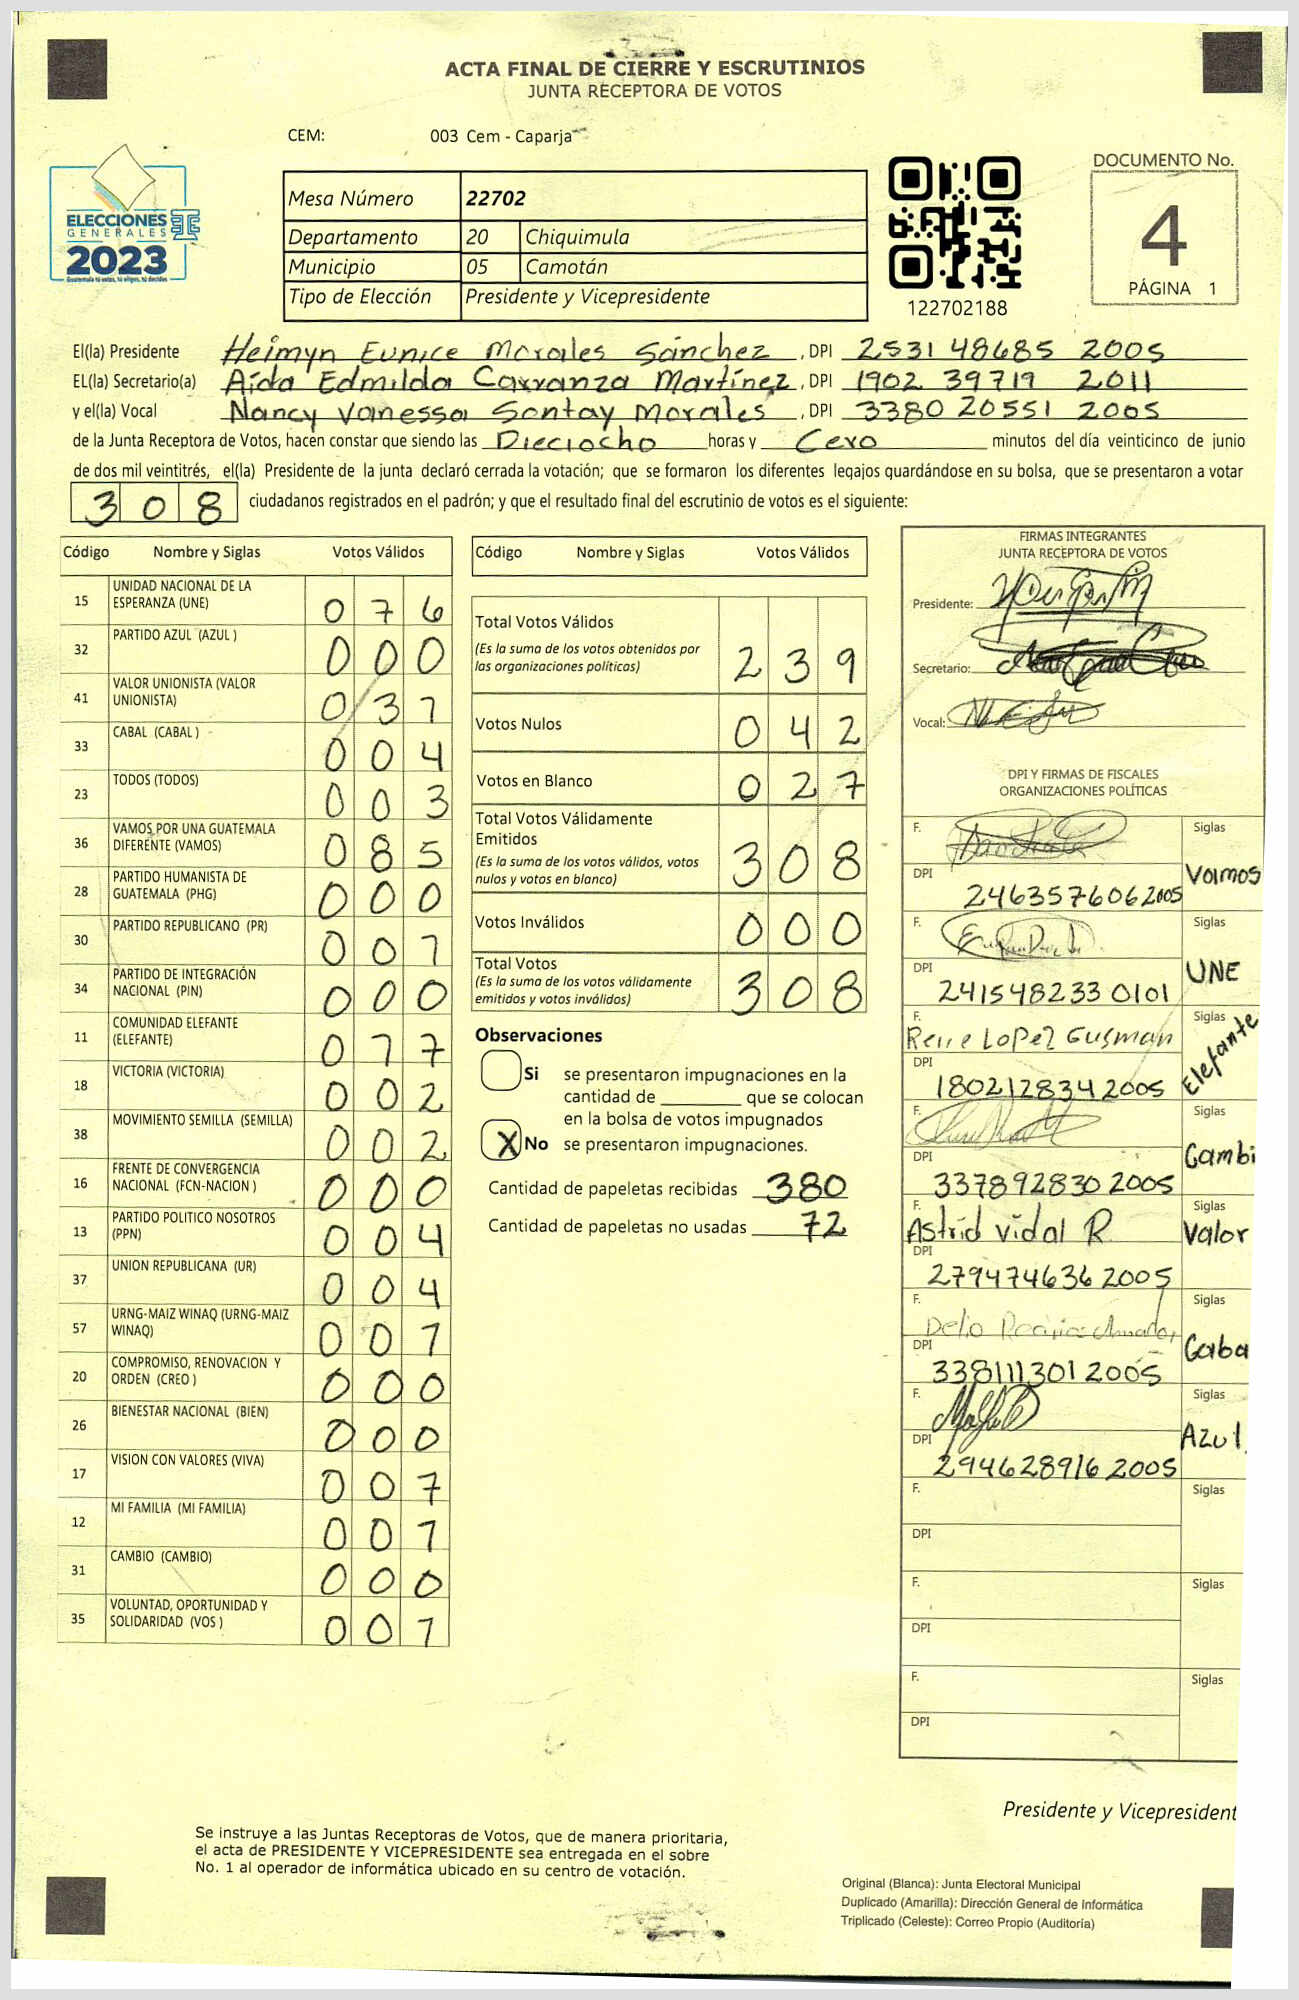 ACTA FINAL DE CIERRE Y ESCRUTINIOS
JUNTA RECEPTORA DE VOTOS
CEM: 003 Cem - Caparja
ELECCIONES
GENERALES
2023
Guatemala tú votas, tú eliges, tú decides
Mesa Número 22702
Departamento 20 Chiquimula
Municipio 05 Camotán
Tipo de Elección Presidente y Vicepresidente
122702188
DOCUMENTO No.
4
PÁGINA 1
El(la) Presidente Heimyn Eunice Morales Sánchez , DPI 2531 48685 2005
EL(la) Secretario(a) Aída Edmilda Carranza Martínez , DPI 1902 39719 2011
y el(la) Vocal Nancy Vanessa Sontay Morales , DPI 3380 20551 2005
de la Junta Receptora de Votos, hacen constar que siendo las Dieciocho horas y Cero minutos del día veinticinco de junio
de dos mil veintitrés, el(la) Presidente de la junta declaró cerrada la votación; que se formaron los diferentes legajos quardándose en su bolsa, que se presentaron a votar
308 ciudadanos registrados en el padrón; y que el resultado final del escrutinio de votos es el siguiente:
Código Nombre y Siglas Votos Válidos
15 UNIDAD NACIONAL DE LA ESPERANZA (UNE) 0 7 6
32 PARTIDO AZUL (AZUL ) 0 0 0
41 VALOR UNIONISTA (VALOR UNIONISTA) 0 3 1
33 CABAL (CABAL ) 0 0 4
23 TODOS (TODOS) 0 0 3
36 VAMOS POR UNA GUATEMALA DIFERENTE (VAMOS) 0 8 5
28 PARTIDO HUMANISTA DE GUATEMALA (PHG) 0 0 0
30 PARTIDO REPUBLICANO (PR) 0 0 1
34 PARTIDO DE INTEGRACIÓN NACIONAL (PIN) 0 0 0
11 COMUNIDAD ELEFANTE (ELEFANTE) 0 1 7
18 VICTORIA (VICTORIA) 0 0 2
38 MOVIMIENTO SEMILLA (SEMILLA) 0 0 2
16 FRENTE DE CONVERGENCIA NACIONAL (FCN-NACION ) 0 0 0
13 PARTIDO POLITICO NOSOTROS (PPN) 0 0 4
37 UNION REPUBLICANA (UR) 0 0 4
57 URNG-MAIZ WINAQ (URNG-MAIZ WINAQ) 0 0 1
20 COMPROMISO, RENOVACION Y ORDEN (CREO ) 0 0 0
26 BIENESTAR NACIONAL (BIEN) 0 0 0
17 VISION CON VALORES (VIVA) 0 0 7
12 MI FAMILIA (MI FAMILIA) 0 0 1
31 CAMBIO (CAMBIO) 0 0 0
35 VOLUNTAD, OPORTUNIDAD Y SOLIDARIDAD (VOS ) 0 0 1
Código Nombre y Siglas Votos Válidos
Total Votos Válidos
(Es la suma de los votos obtenidos por
las organizaciones políticas) 2 3 9
Votos Nulos 0 4 2
Votos en Blanco 0 2 7
Total Votos Válidamente
Emitidos
(Es la suma de los votos válidos, votos
nulos y votos en blanco) 3 0 8
Votos Inválidos 0 0 0
Total Votos
(Es la suma de los votos válidamente
emitidos y votos inválidos) 3 0 8
Observaciones
Si se presentaron impugnaciones en la
cantidad de ________ que se colocan
en la bolsa de votos impugnados
X No se presentaron impugnaciones.
Cantidad de papeletas recibidas 380
Cantidad de papeletas no usadas 72
FIRMAS INTEGRANTES
JUNTA RECEPTORA DE VOTOS
Presidente:
Secretario:
Vocal:
DPI Y FIRMAS DE FISCALES
ORGANIZACIONES POLÍTICAS
F. Siglas
DPI 246357606 2005 Vamos
F. Siglas
DPI 241548233 0101 UNE
F. Rene Lopez Gusman Siglas
DPI 180212834 2005 Elefante
F. Siglas
DPI 337892830 2005 Cambi
F. Astrid Vidal R Siglas
DPI 279474636 2005 Valor
F. Siglas
DPI 338111301 2005 Caba
F. Siglas
DPI 294628916 2005 Azul
F. Siglas
DPI
F. Siglas
DPI
F. Siglas
DPI
Presidente y Vicepresident
Se instruye a las Juntas Receptoras de Votos, que de manera prioritaria,
el acta de PRESIDENTE Y VICEPRESIDENTE sea entregada en el sobre
No. 1 al operador de informática ubicado en su centro de votación.
Original (Blanca): Junta Electoral Municipal
Duplicado (Amarilla): Dirección General de Informática
Triplicado (Celeste): Correo Propio (Auditoría)